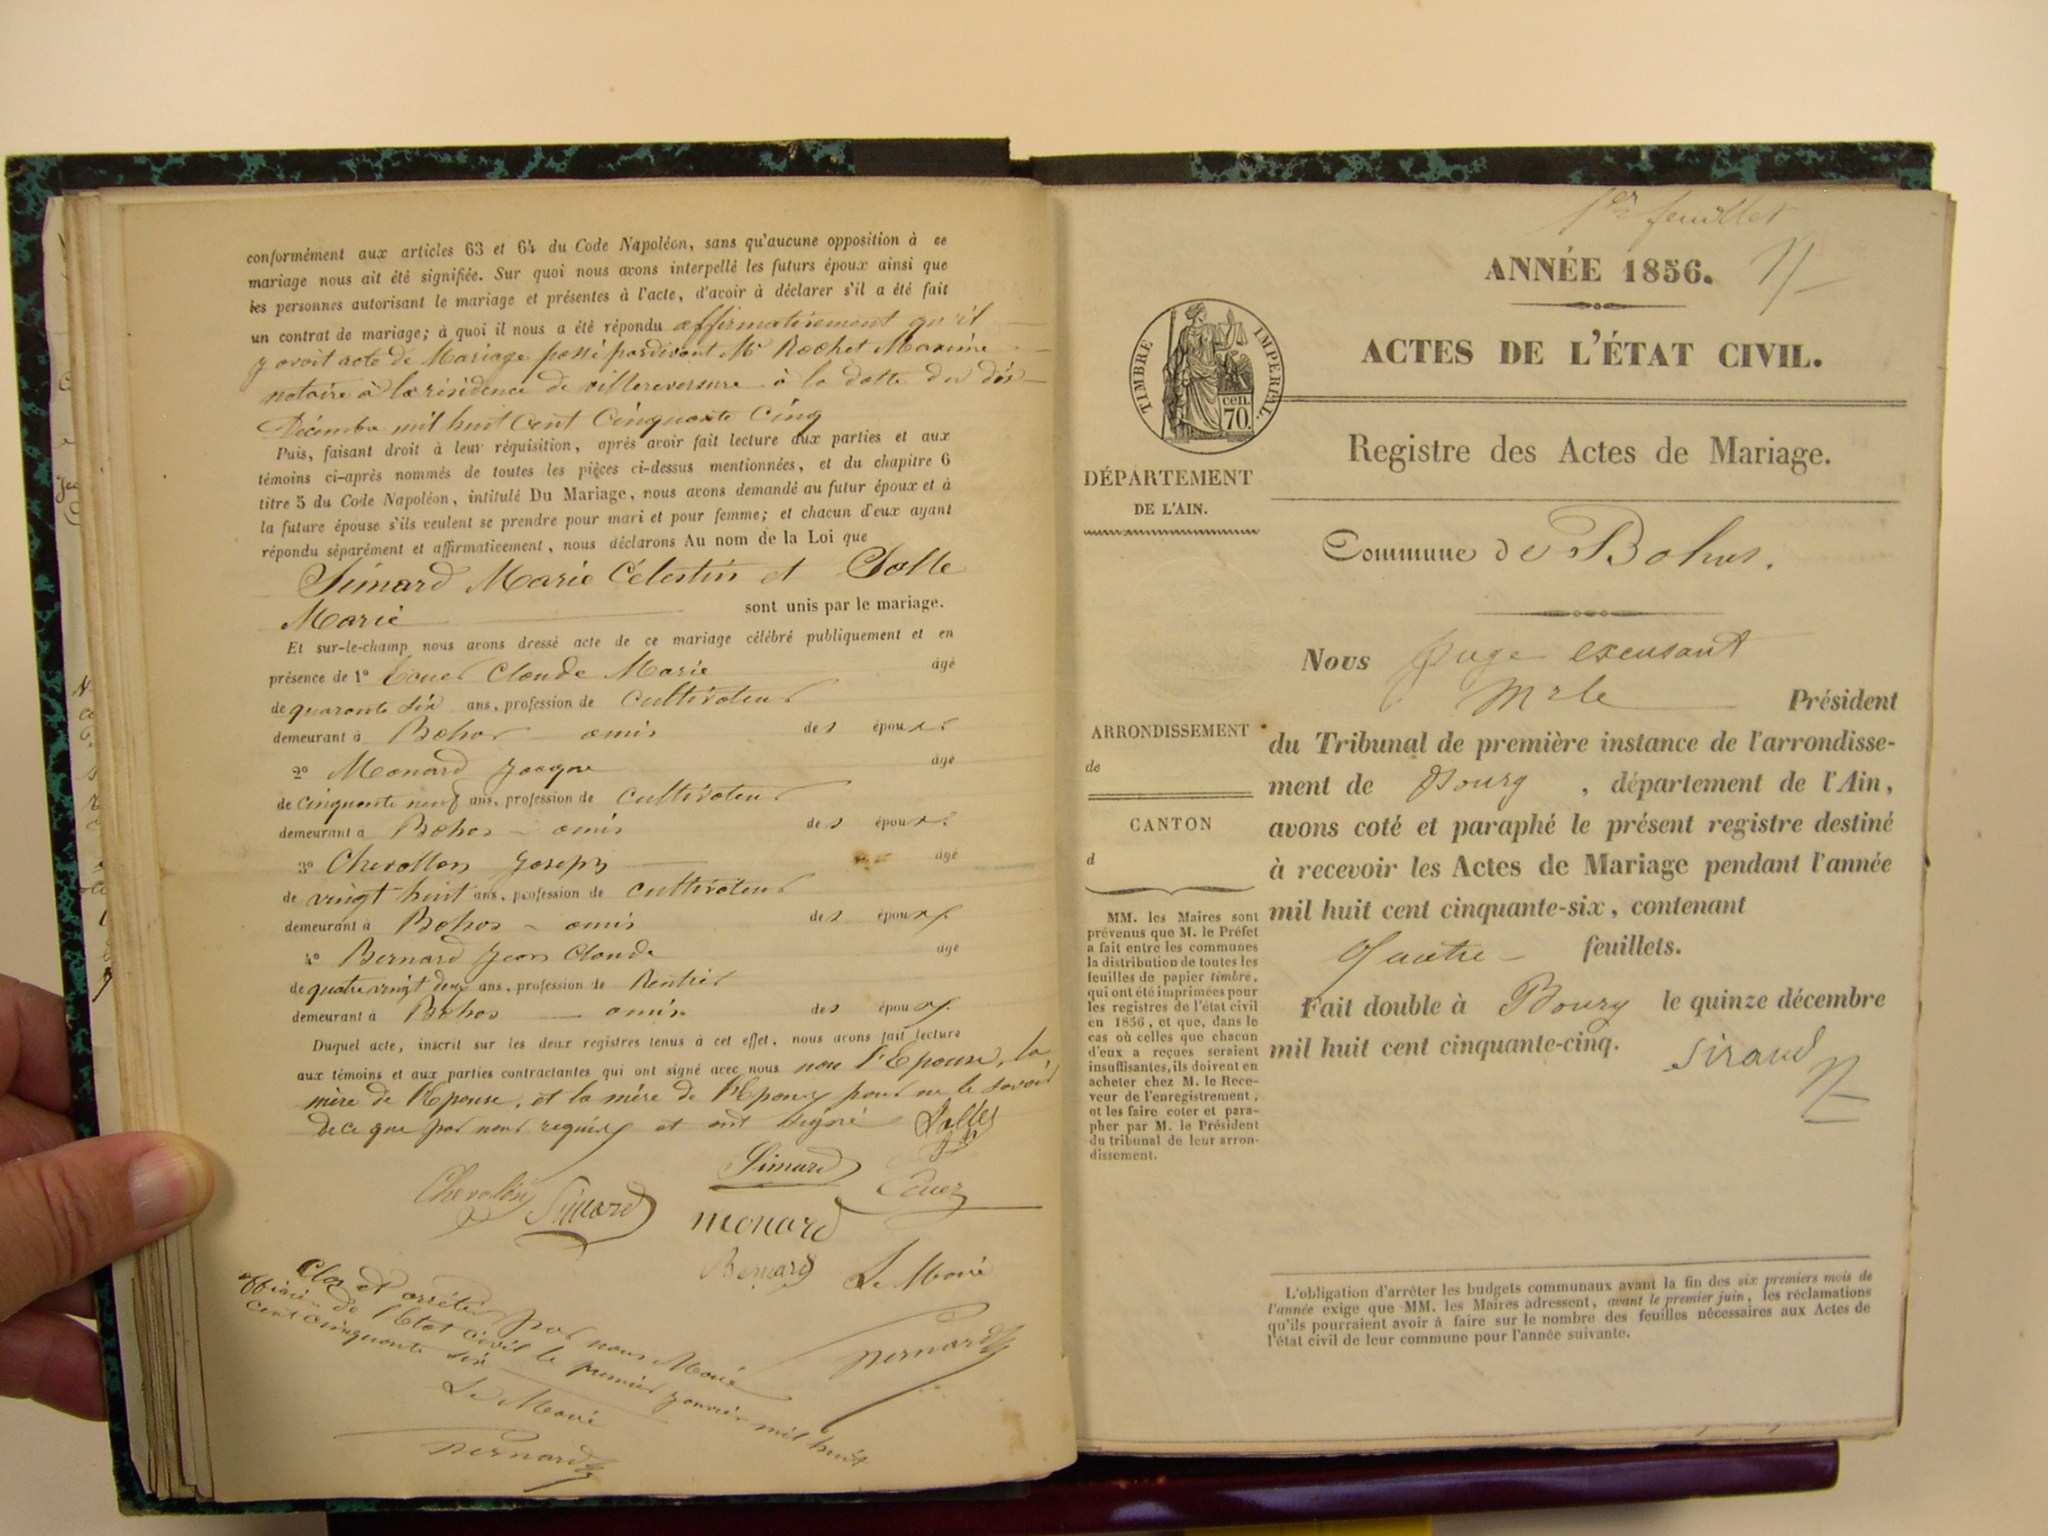 conformément aux articles 63 et 64 du Code Napoléon, sans qu'aucune opposition à ce
mariage nous ait été signifiée. Sur quoi nous avons interpellé les futurs époux ainsi que
les personnes autorisant le mariage et présentes à l'acte, d'avoir à déclarer s'il a été fait
un contrat de mariage; à quoi il nous a été répondu affirmativement qu'il
y avoit acte de Mariage passé pardevant Me Rochet Maxime
notaire à la résidence de villereversure à la datte du dix
Décembre mil huit Cent Cinquante Cinq
Puis, faisant droit à leur réquisition, après avoir fait lecture aux parties et aux
témoins ci-après nommés de toutes les pièces ci-dessus mentionnées, et du chapitre 6
titre 5 du Code Napoléon, intitulé Du Mariage, nous avons demandé au futur époux et à
la future épouse s'ils veulent se prendre pour mari et pour femme; et chacun d'eux ayant
répondu séparément et affirmativement, nous déclarons Au nom de la Loi que
Simard Marie Célestin et
Marie sont unis par le mariage.
Et sur-le-champ nous avons dressé acte de ce mariage célébré publiquement et en
présence de 1º Claude Marie âgé
de quarante six ans, profession de Cultivateur
demeurant à Bohas amis des époux.
2º Monard Jacque âgé
de Cinquante neuf ans, profession de Cultivateur
demeurant à Bohas - amis des époux.
3º Chevallon Joseph âgé
de vingt huit ans, profession de Cultivateur
demeurant à Bohas - amis des époux.
4º Bernard Jean Claude âgé
de quatre vingt deux ans, profession de Rentier
demeurant à Bohas amis des époux.
Duquel acte, inscrit sur les deux registres tenus à cet effet, nous avons fait lecture
aux témoins et aux parties contractantes qui ont signé avec nous non l'Epouse, la
mère de l'Epouse, et la mère de l'Epoux pour ne le savoir
de ce que par nous requis et ont signé
Simard
Simard
monard
Bernard Le Maire
Bernard
Clos et arrêté par nous Maire
officier de l'Etat civil le premier janvier mil huit
cent cinquante six
Le Maire
Bernard
1er feuillet
ANNÉE 1856.
TIMBRE IMPERIAL.
cen.
70.
ACTES DE L'ÉTAT CIVIL.
Registre des Actes de Mariage.
DÉPARTEMENT
DE L'AIN.
Commune de Bohas.
Nous Juge excusant
Mr le Président
du Tribunal de première instance de l'arrondisse-
ment de Bourg, département de l'Ain,
avons coté et paraphé le présent registre destiné
à recevoir les Actes de Mariage pendant l'année
mil huit cent cinquante-six, contenant
Quatre feuillets.
Fait double à Bourg le quinze décembre
mil huit cent cinquante-cinq.
Siraud
ARRONDISSEMENT
de
CANTON
d
MM. les Maires sont
prévenus que M. le Préfet
a fait entre les communes
la distribution de toutes les
feuilles de papier timbré,
qui ont été imprimées pour
les registres de l'état civil
en 1856, et que, dans le
cas où celles que chacun
d'eux a reçues seraient
insuffisantes, ils doivent en
acheter chez M. le Rece-
veur de l'enregistrement,
et les faire coter et para-
pher par M. le Président
du tribunal de leur arron-
dissement.
L'obligation d'arrêter les budgets communaux avant la fin des six premiers mois de
l'année exige que MM. les Maires adressent, avant le premier juin, les réclamations
qu'ils pourraient avoir à faire sur le nombre des feuilles nécessaires aux Actes de
l'état civil de leur commune pour l'année suivante.